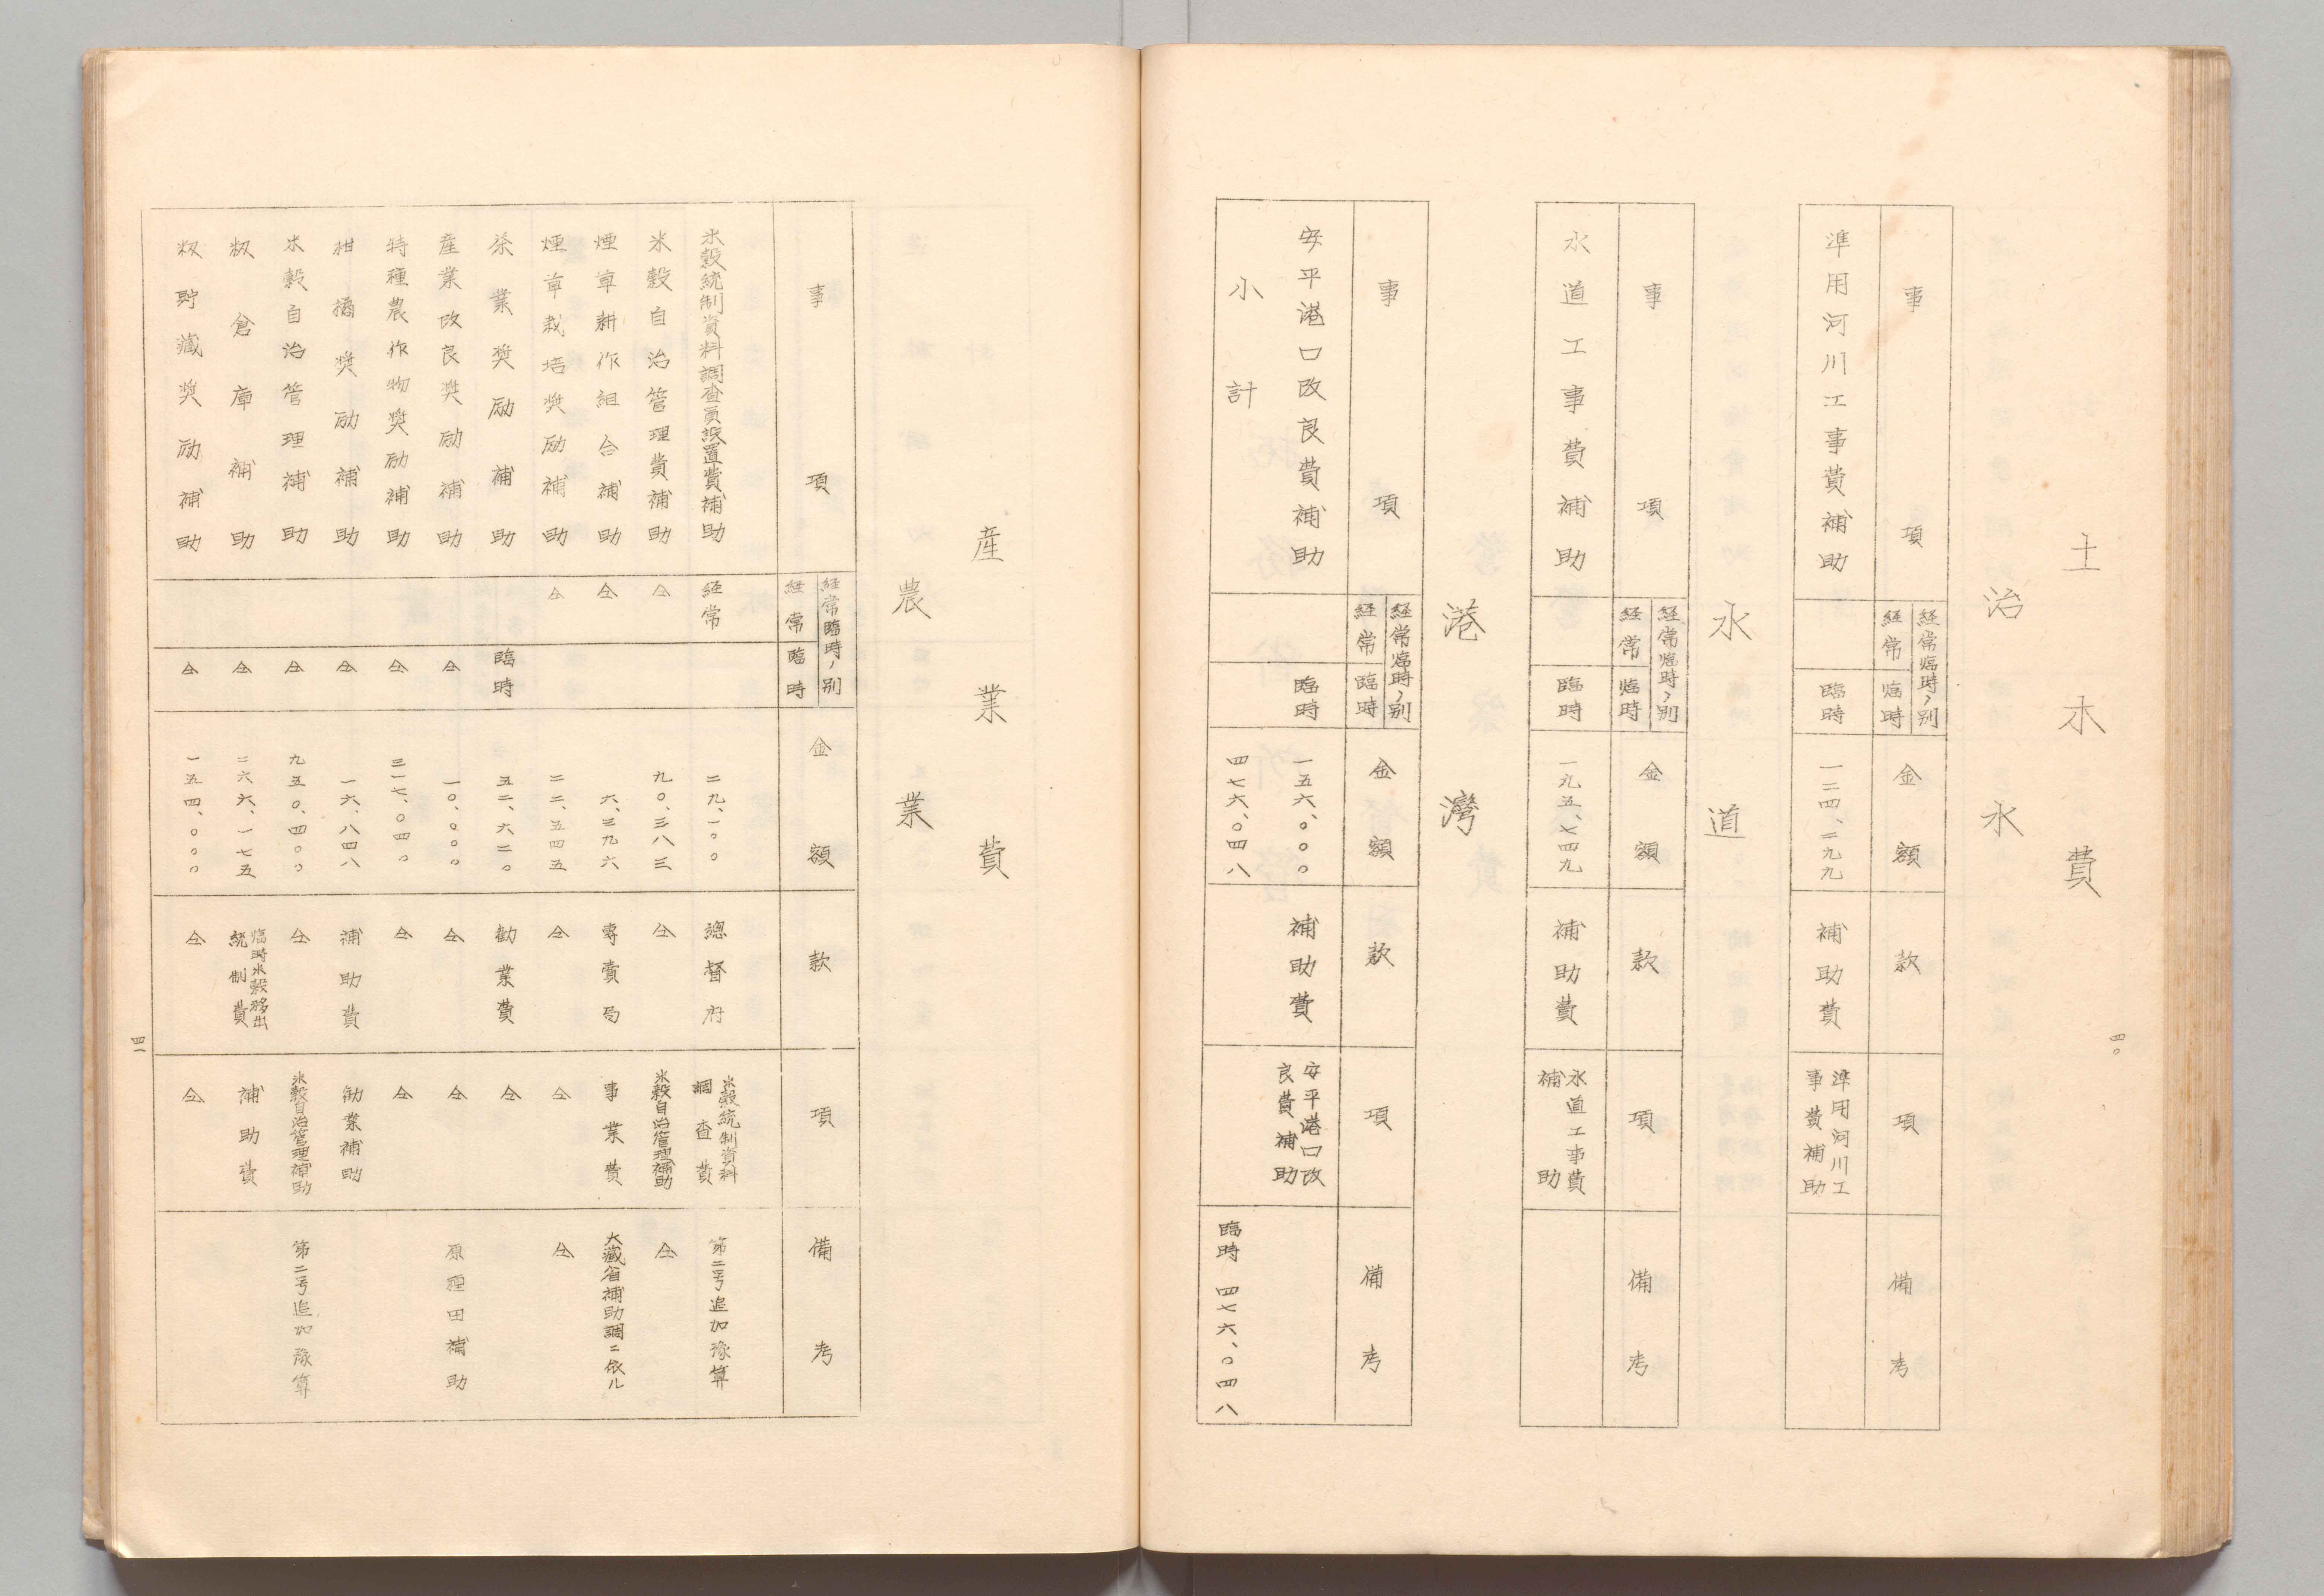 土木費
治水
事項
経常臨時ノ別
経常
臨時
金額
款
項
備考
準用河川工事費補助
臨時
一二四、二九九
補助費
準用河川工
事費補助
水道
事項
経常臨時ノ別
経常
臨時
金額
款
項
備考
水道工事費補助
臨時
一九五、七四九
補助費
水道工事費
補助
港湾
事項
経常臨時ノ別
経常
臨時
金額
款
項
備考
安平港口改良費補助
臨時
一五六、〇〇〇
補助費
安平港口改
良費補助
小計
四七六、〇四八
臨時 四七六、〇四八
四〇
産業費
農業
事項
経常臨時ノ別
経常
臨時
金額
款
項
備考
米穀統制資料調査員設置費補助
経常
二九、一〇〇
總督府
米穀統制資料
調査費
第二号追加豫算
米穀自治管理費補助
仝
九〇、三八三
仝
米穀自治管理補助
仝
煙草耕作組合補助
仝
六、三九六
專賣局
事業費
大藏省補助調ニ依ル
煙草栽培奨励補助
仝
二二、五四五
仝
仝
仝
茶業奨励補助
臨時
五二、六二〇
勧業費
仝
産業改良奨励補助
仝
一〇、〇〇〇
仝
仝
原種田補助
特種農作物奨励補助
仝
三一七、〇四〇
仝
仝
柑橘奨励補助
仝
一六、八四八
補助費
勧業補助
米穀自治管理補助
仝
九五〇、四〇〇
仝
米穀自治管理補助
第二号追加豫算
籾倉庫補助
仝
二六六、一七五
臨時米穀移出
統制費
補助費
籾貯藏奨励補助
仝
一五四、〇〇〇
仝
仝
四一